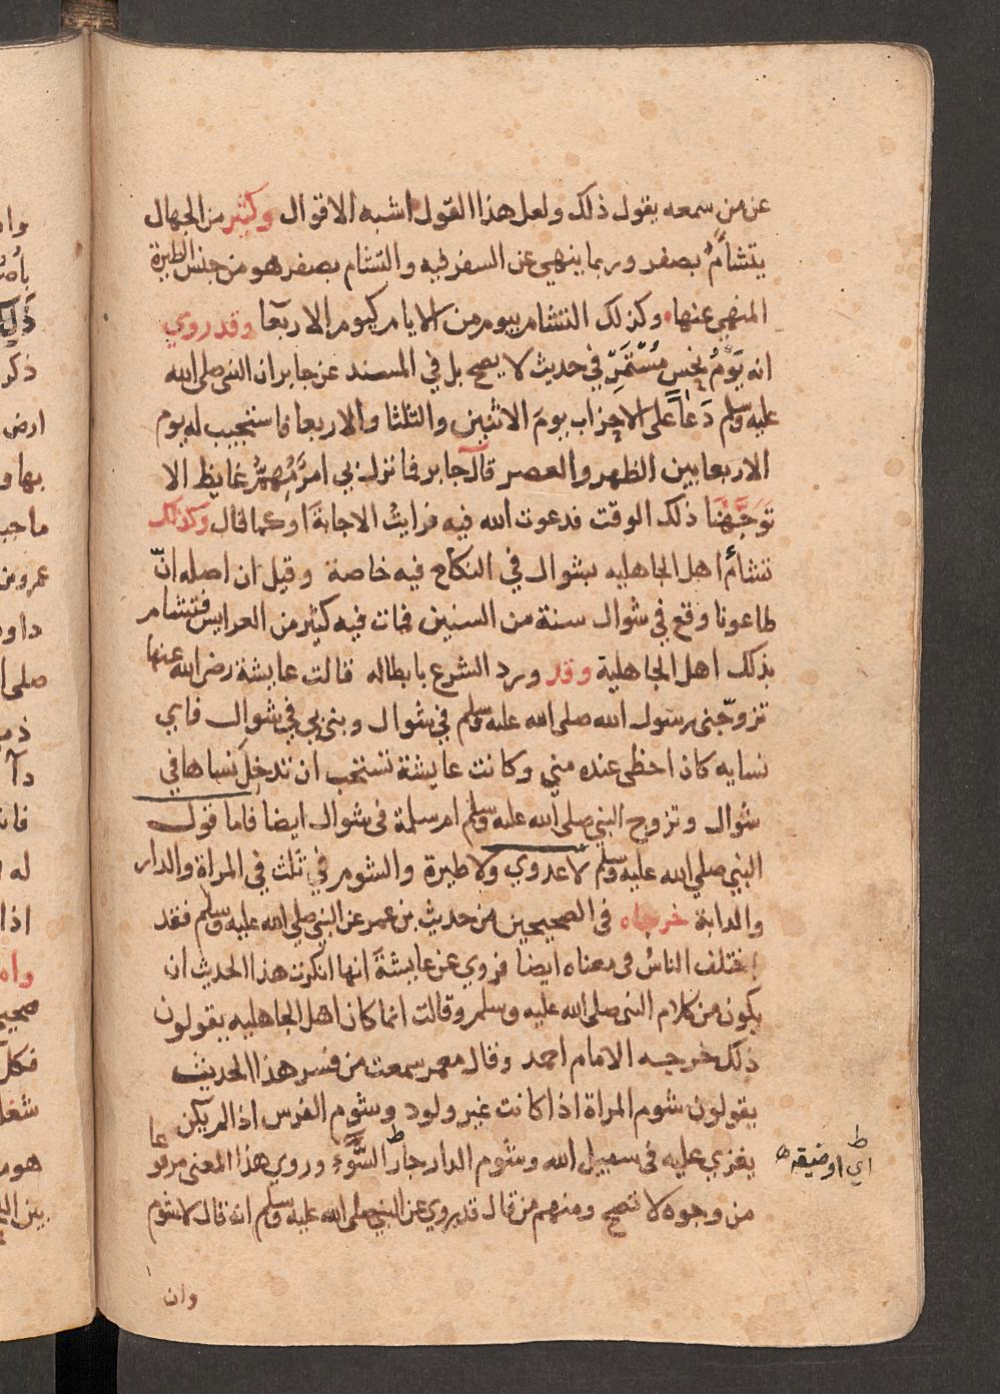 عن من سمعه يقول ذلك ولعل هذا القول اشبه الاقوال وكثير من الجهال
يتشأم بصفر وربما ينهي عن السفر فيه والتشام بصفر هو من جنس الطيرة
المنهي عنها وكذلك التشام بيوم من الايام كيوم الاربعا وقد روي
انه يَوْمُ نحسٍ مُسْتَمِرّ في حديث لا يصح بل في المسند عن جابر ان النبي صلى الله
عليه وسلم دَعَا على الاحزاب يومَ الاثنين والثلثا والاربعا فاستجيب له يوم
الاربعا بين الظهر والعصر قال جابر فما نزل بي امرٌ مُهِمٌّ غايظ الا
تَوَجَّهْنَا ذلك الوقت فدعوت الله فيه فرايتُ الاجابةَ او كما قال وكذلك
تشأم اهل الجاهليه بشوال في النكاح فيه خاصة وقيل ان اصله انّ
طاعونا وقع في شوال سنة من السنين فمات فيه كثير من العرايس فتشام
بذلك اهل الجاهلية وقد ورد الشرع بابطاله قالت عايشة رضي الله عنها
تزوجني رسول الله صلى الله عليه وسلم في شوال وبنى بي في شوال فاي
نسايه كان احظى عنده مني وكانت عايشة تستحب ان تدخل نساها في
شوال وتزوج النبي صلى الله عليه وسلم ام سلمة في شوال ايضا فاما قول
النبي صلى الله عليه وسلم لا عدوي ولا طيرة والشوم في ثلث في المراة والدار
والدابة خرجاه في الصحيحين من حديث بن عمر عن النبي صلى الله عليه وسلم فقد
اختلف الناسُ في معناه ايضا فروي عن عايشةَ انها انكرت هذا الحديث ان
يكون من كلام النبي صلى الله عليه وسلم وقالت انما كان اهل الجاهليه يقولون
ذلك خرجه الامام احمد وقال معمر سمعت من فسر هذا الحديث
يقولون شوم المراة اذا كانت غير ولود وشوم الفرس اذا لم يكن
يغزي عليه في سبيل الله وشوم الدار جار السُّوءِ وروي هذا المعنى مرفوعا
من وجوه لا تصح ومنهم من قال قد روي عن النبي صلى الله عليه وسلم انه قال لا شوم
ط
اي او ضيقه
وان